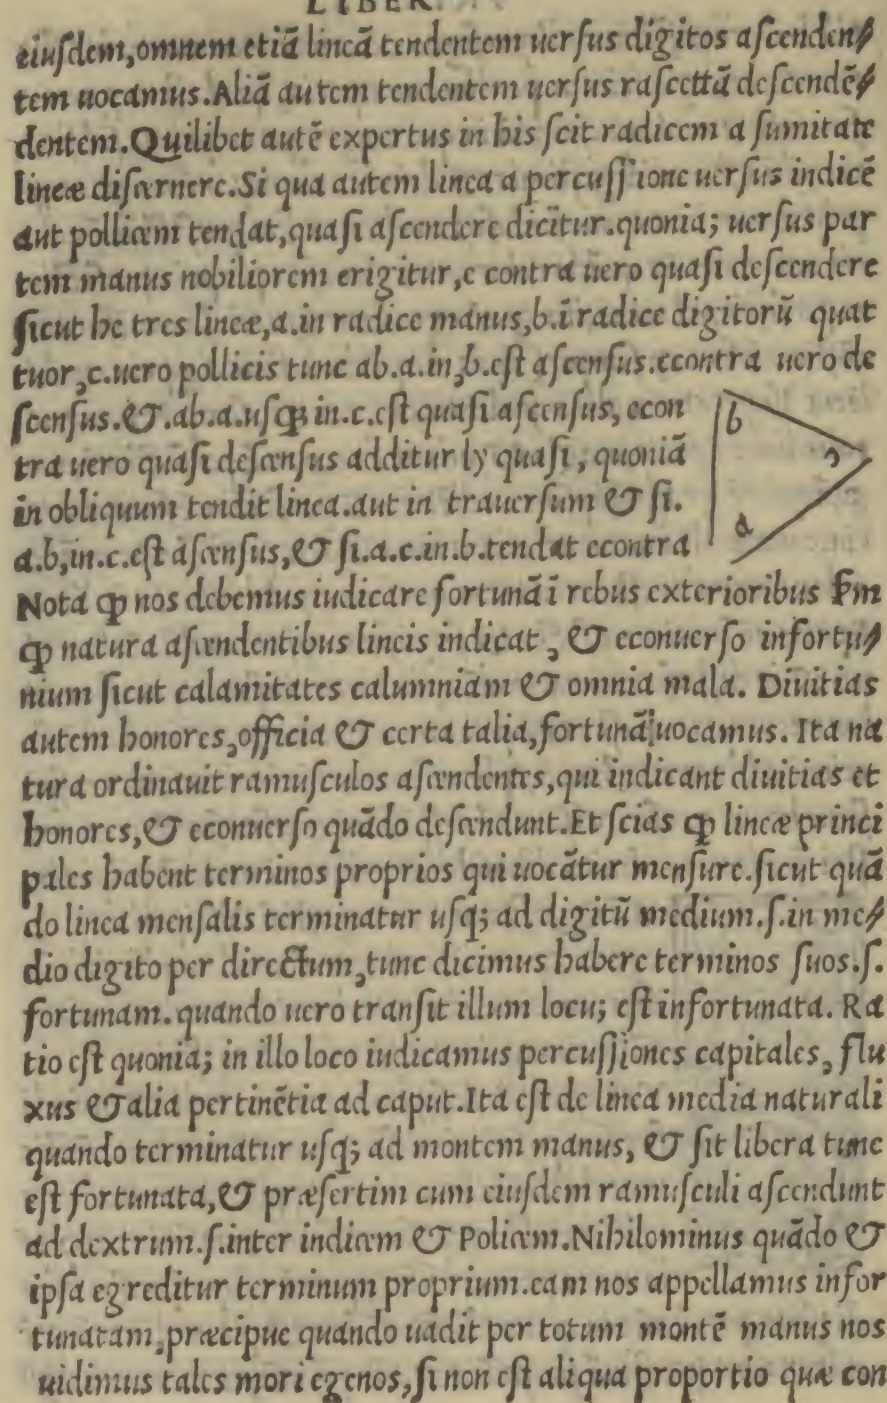 LIBER
eiuſdem,omnem etiā lineā tendentem uerſus digitos aſcenden⸗
tem uocamus.Aliā autem tendentem uerſus raſcettā deſcendē⸗
dentem.Quilibet autē expertus in his ſcit radicem a ſumitate
lineæ diſcernere.Si qua autem linea a percuſſione uerſus indicē
aut pollicem tendat,quaſi aſcendere dicitur.quoniaꝫ uerſus par
tem manus nobiliorem erigitur,e contra uero quaſi deſcendere
ſicut he tres lineæ,a.in radice manus,b.ī radice digitorū quat
tuor,c.uero pollicis tunc ab.a.in,b.eſt aſcenſus.econtra uero de
ſcenſus.&.ab.a.uſqꝫ in.c.eſt quaſi aſcenſus, econ
tra uero quaſi deſcenſus additur ly quaſi, quoniā
in obliquum tendit linea.aut in trauerſum & ſi.
a.b,in.c.eſt aſcenſus,& ſi.a.c.in.b.tendat econtra
b
c
a
Nota ꝙ nos debemus iudicare fortunā ī rebus exterioribus ẜm
ꝙ natura aſcendentibus lineis indicat, & econuerſo infortu⸗
nium ſicut calamitates calumniam & omnia mala. Diuitias
autem honores,officia & certa talia,fortunā uocamus. Ita na
tura ordinauit ramuſculos aſcendentes,qui indicant diuitias et
honores,& econuerſo quādo deſcendunt.Et ſcias ꝙ lineæ princi
pales habent terminos proprios qui uocātur menſure.ſicut quā
do linea menſalis terminatur uſqꝫ ad digitū medium.ſ.in me⸗
dio digito per directum,tunc dicimus habere terminos ſuos.ſ.
fortunam.quando uero tranſit illum locuꝫ eſt infortunata. Ra
tio eſt quoniaꝫ in illo loco iudicamus percuſſiones capitales, flu
xus & alia pertinētia ad caput.Ita eſt de linea media naturali
quando terminatur uſqꝫ ad montem manus, & ſit libera tunc
eſt fortunata,& præſertim cum eiuſdem ramuſculi aſcendunt
ad dextrum.ſ.inter indicem & Policem.Nihilominus quādo &
ipſa egreditur terminum proprium.eam nos appellamus infor
tunatam,præcipue quando uadit per totum montē manus nos
uidimus tales mori egenos,ſi non eſt aliqua proportio quæ con